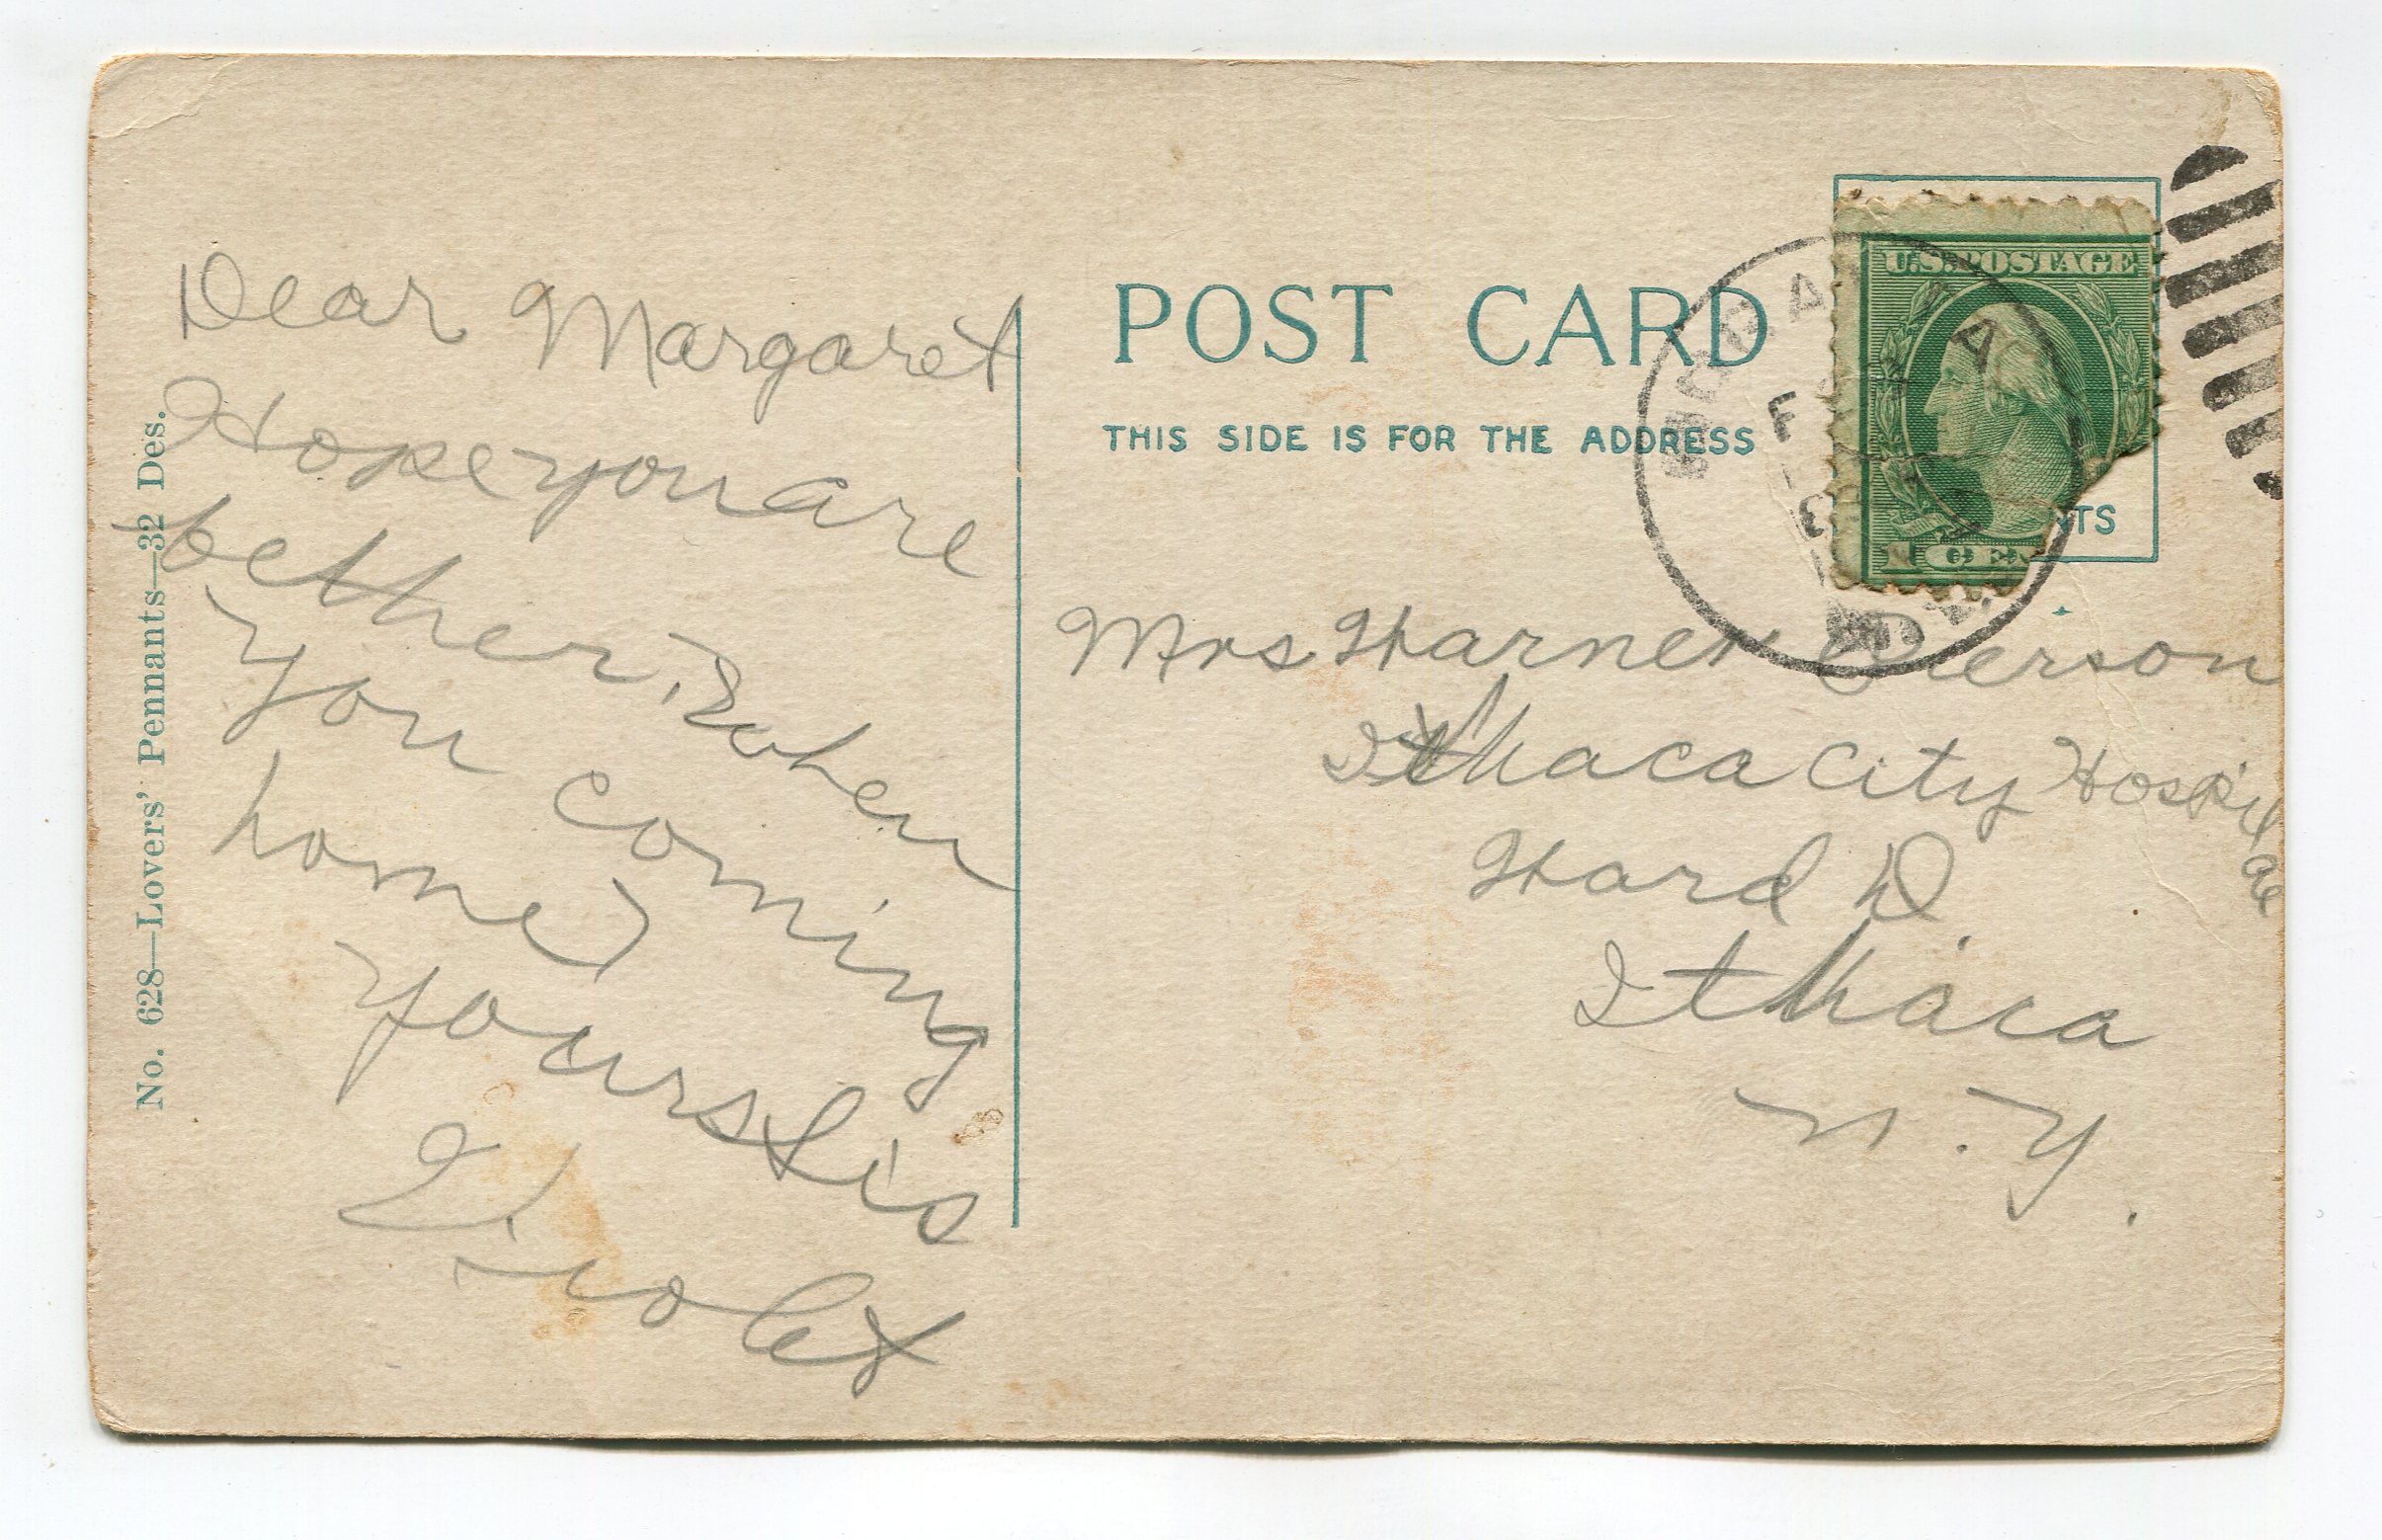 Dear Margaret
Hope you are
better, when
you coming
home?
Yours Sis
Violet
No. 628—Lovers' Pennants—32 Des.
POST CARD
THIS SIDE IS FOR THE ADDRESS
U.S. POSTAGE
1 CEN
NTS
Mrs Pierson
Ithaca City Hospital
Ward D.
Ithaca
N.Y.